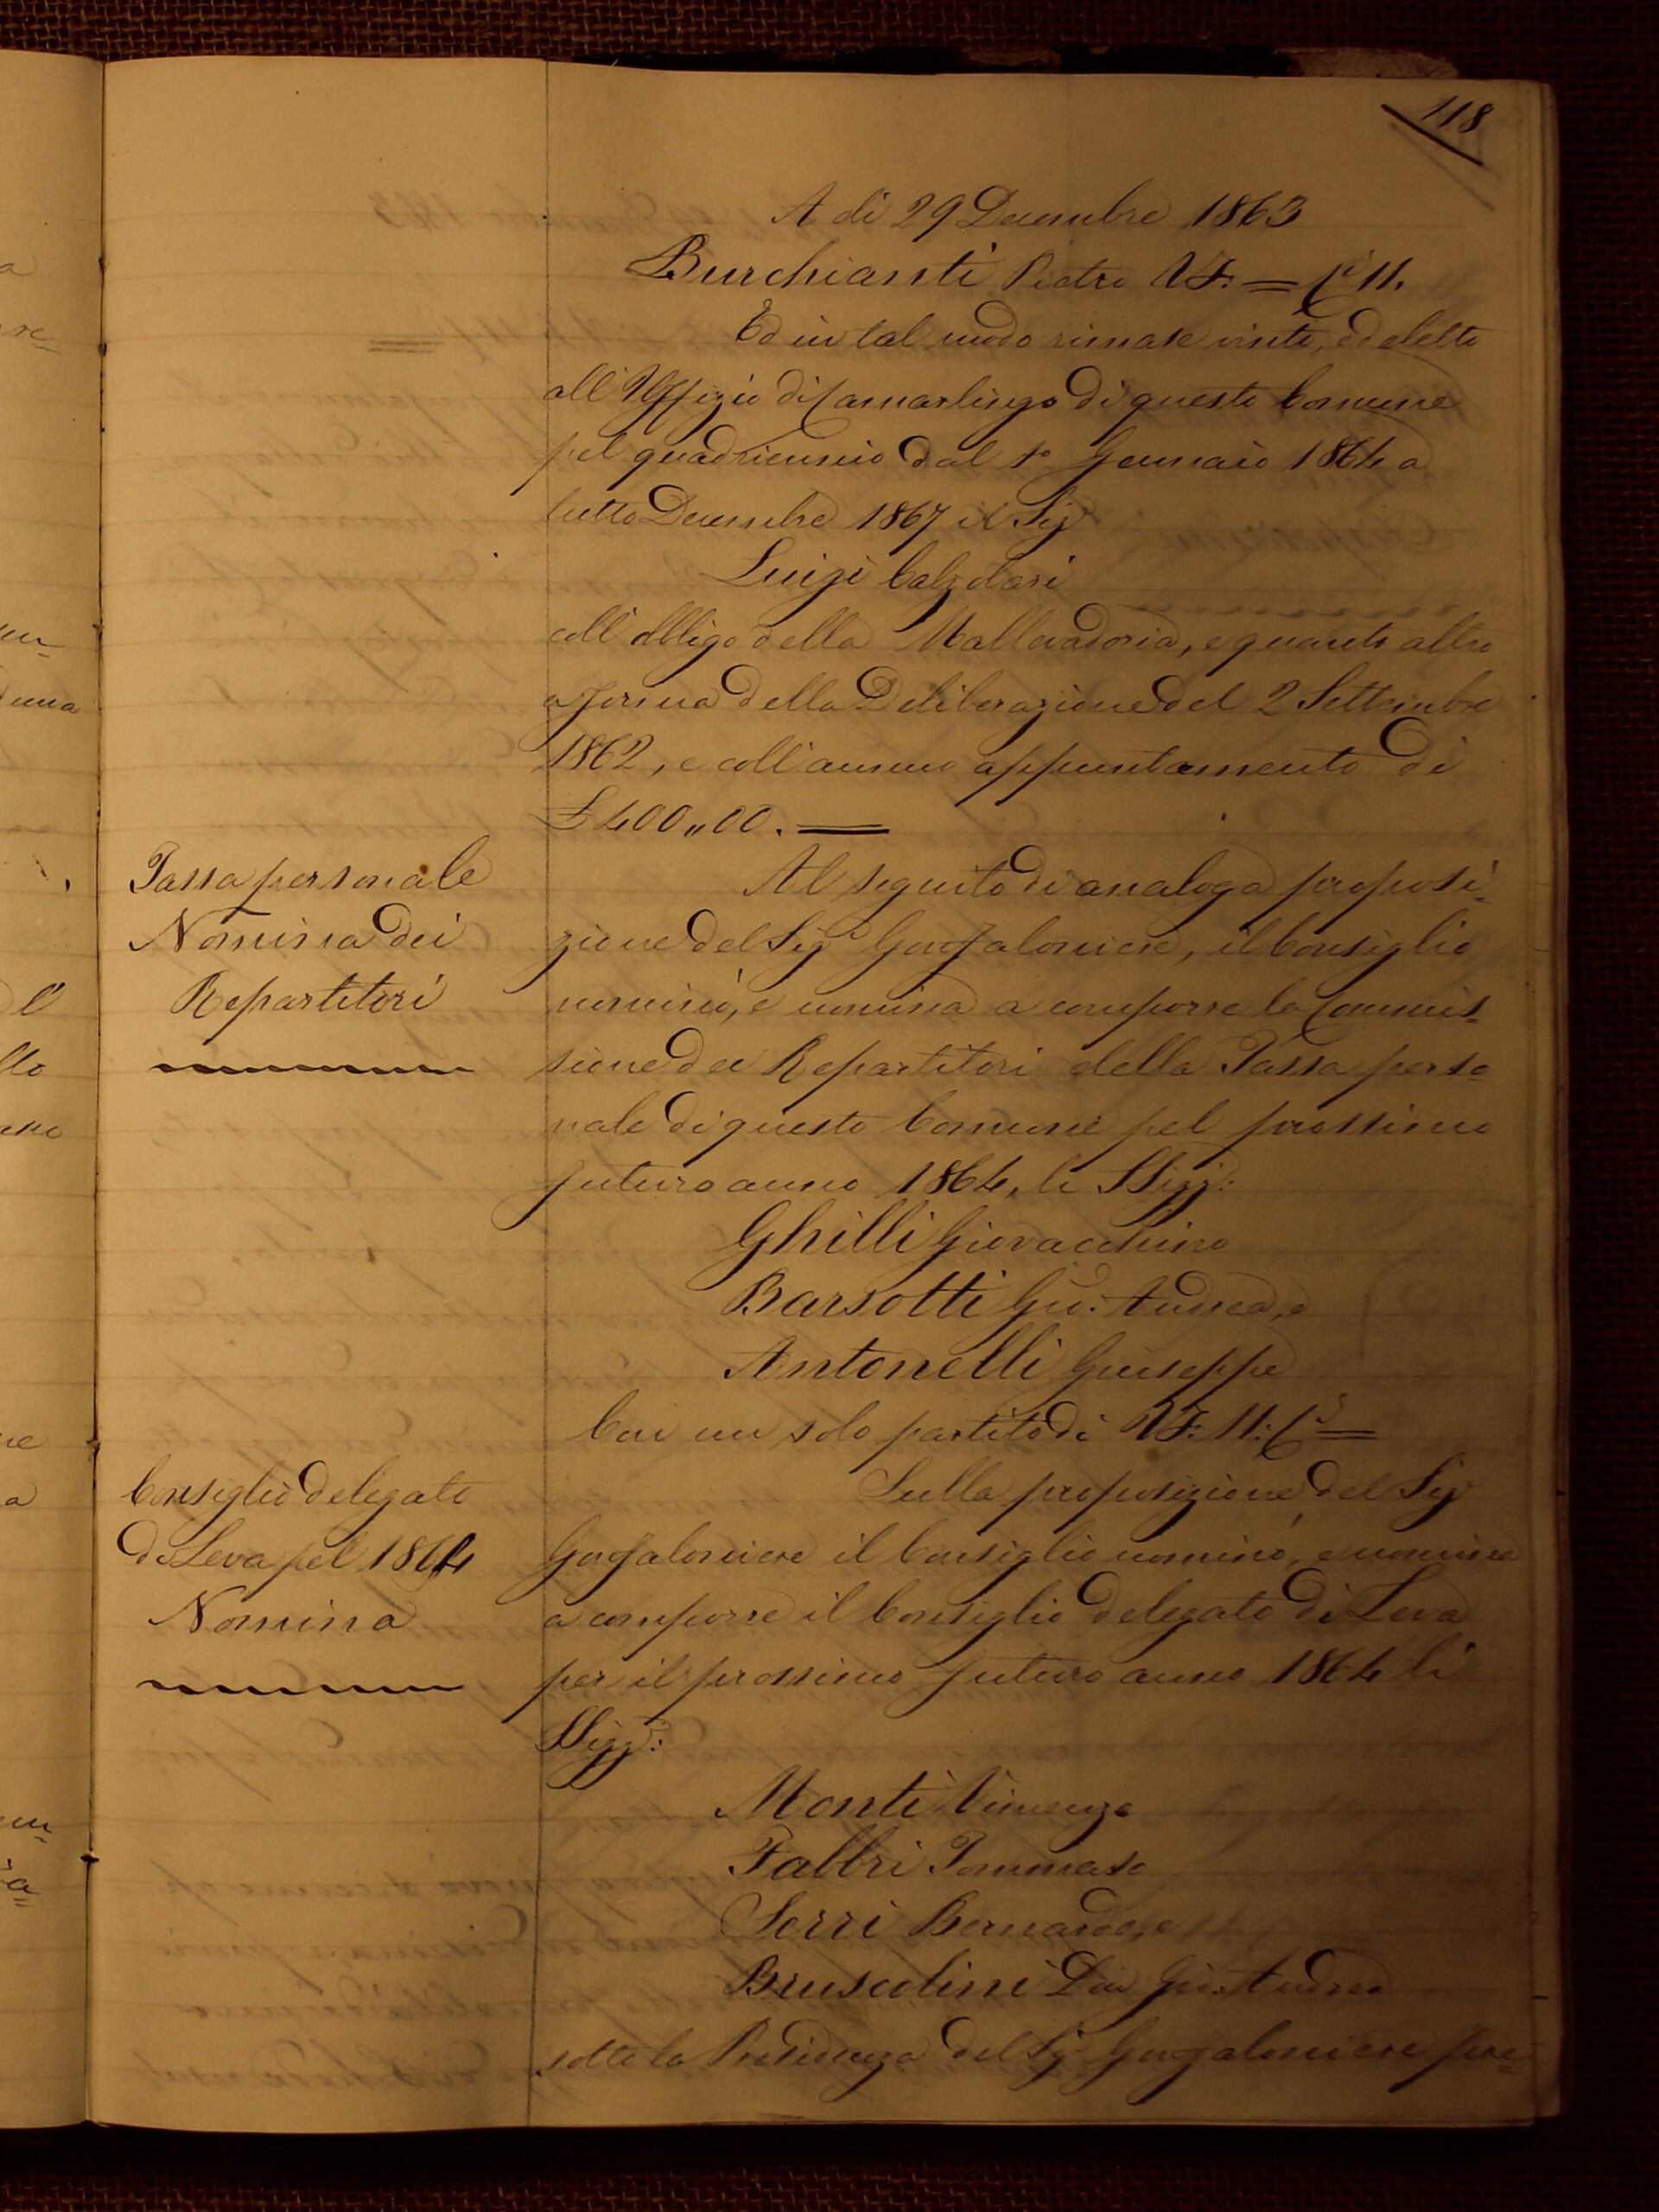 118
A di 29 Decembre 1863
Burchianti Pietro VF. = Ci 11.
Ed in tal modo rimase vinto, ed eletto
all'Uffizio di Camarlingo di questo Comune
pel quadriennio dal 1º Gennaio 1864 a
tutto Decembre 1867 il Sigr
Luigi Calzolari
coll'obbligo della Mallevadoria, e quant'altro
a forma della Deliberazione del 2 Settembre
1862, e coll'annuo appuntamento di
£ 400,,00. =
Tassa personale
Nomina dei
Repartitori
Al seguito di analoga proposi-
zione del Sigr Gonfaloniere, il Consiglio
nominò, e nomina a comporre la Commis-
sione dei Repartitori della Tassa perso-
nale di questo Comune pel prossimo
futuro anno 1864, li SSigg:
Ghilli Giovacchino
Barsotti Gio: Andrea, e
Antonelli Giuseppe
Con un solo partito di VF. 11: Ci =
Consiglio delegato
di Leva pel 1864
Nomina
Sulla proposizione del Sigr
Gonfaloniere il Consiglio nominò, e nomina
a comporre il Consiglio delegato di Leva
per il prossimo futuro anno 1864 li
SSigg:
Monti Vincenzo
Fabbri Tommaso
Serri Bernardo, e
Bruscolini Don Gio: Andrea
sotto la Presidenza del Sigr Gonfaloniere pre-